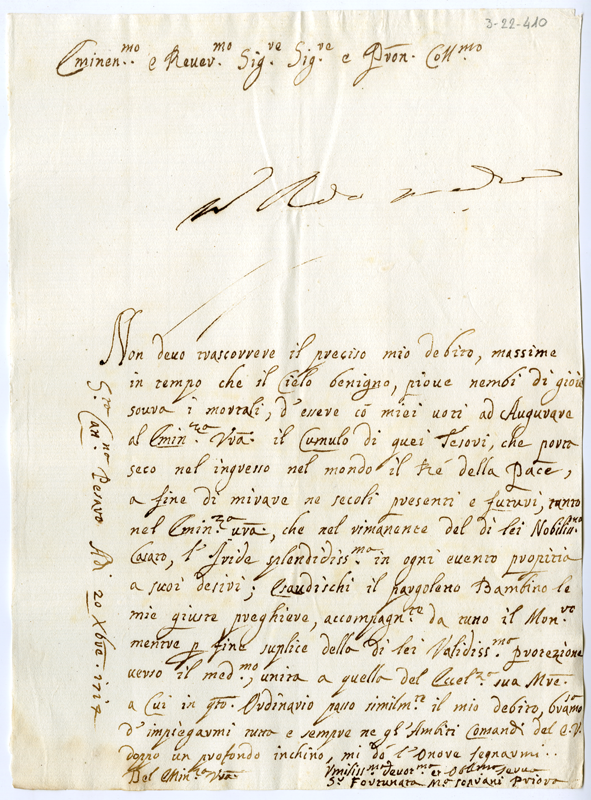 3-22-410
Eminen.mo e Rever.mo Sig.re Sig.re e Pron. Coll.mo
Non devo trascorrere il preciso mio debito, massime
in tempo che il Cielo benigno, piove nembi di gioie
sovra i mortali, d'essere cõ miei voti ad Augurare
al Emin.za Vra. il Cumulo di quei Tesori, che porta
seco nel ingresso nel mondo il Ré della Pace,
a fine di mirare ne secoli presenti e futuri, tanto
nel Emin.za vra, che nel rimanente del di lei Nobiliss.ma
Casato, l'Iride splendidiss.ma in ogni evento propitia
a suoi desiri; Esaudischi il pargoleto Bambino le
mie giuste preghiere, accompagn.te da tuto il Mon.ro
mentre p fine suplice della di lei Validiss.ma protezione
verso il med.mo, unita a quella del Ecel.za sua Mre.
a Cui in qto. Ordinario passo similm.te il mio debito, bramo
d'impiegarmi tuta e sempre ne gl'Ambiti Comandi del E.V.
doppo un profondo inchino, mi dò l'Onore segnarmi..
Del Emin.za Vra.
Umiliss.ma Devot.ma et Obl.ma serva
Sr. Fortunata Ma Priora
Pesaro Adi 20 Xbre.